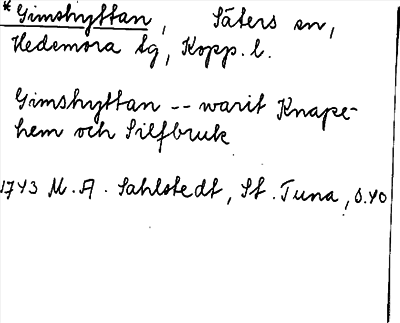 *Gimshyttan, Säters sn,
Hedemora tg, Kopp. l.
Gimshyttan -- warit Knape-
hem och Silfbruk
1743 M. A. Sahlstedt, St. Tuna, s. 40